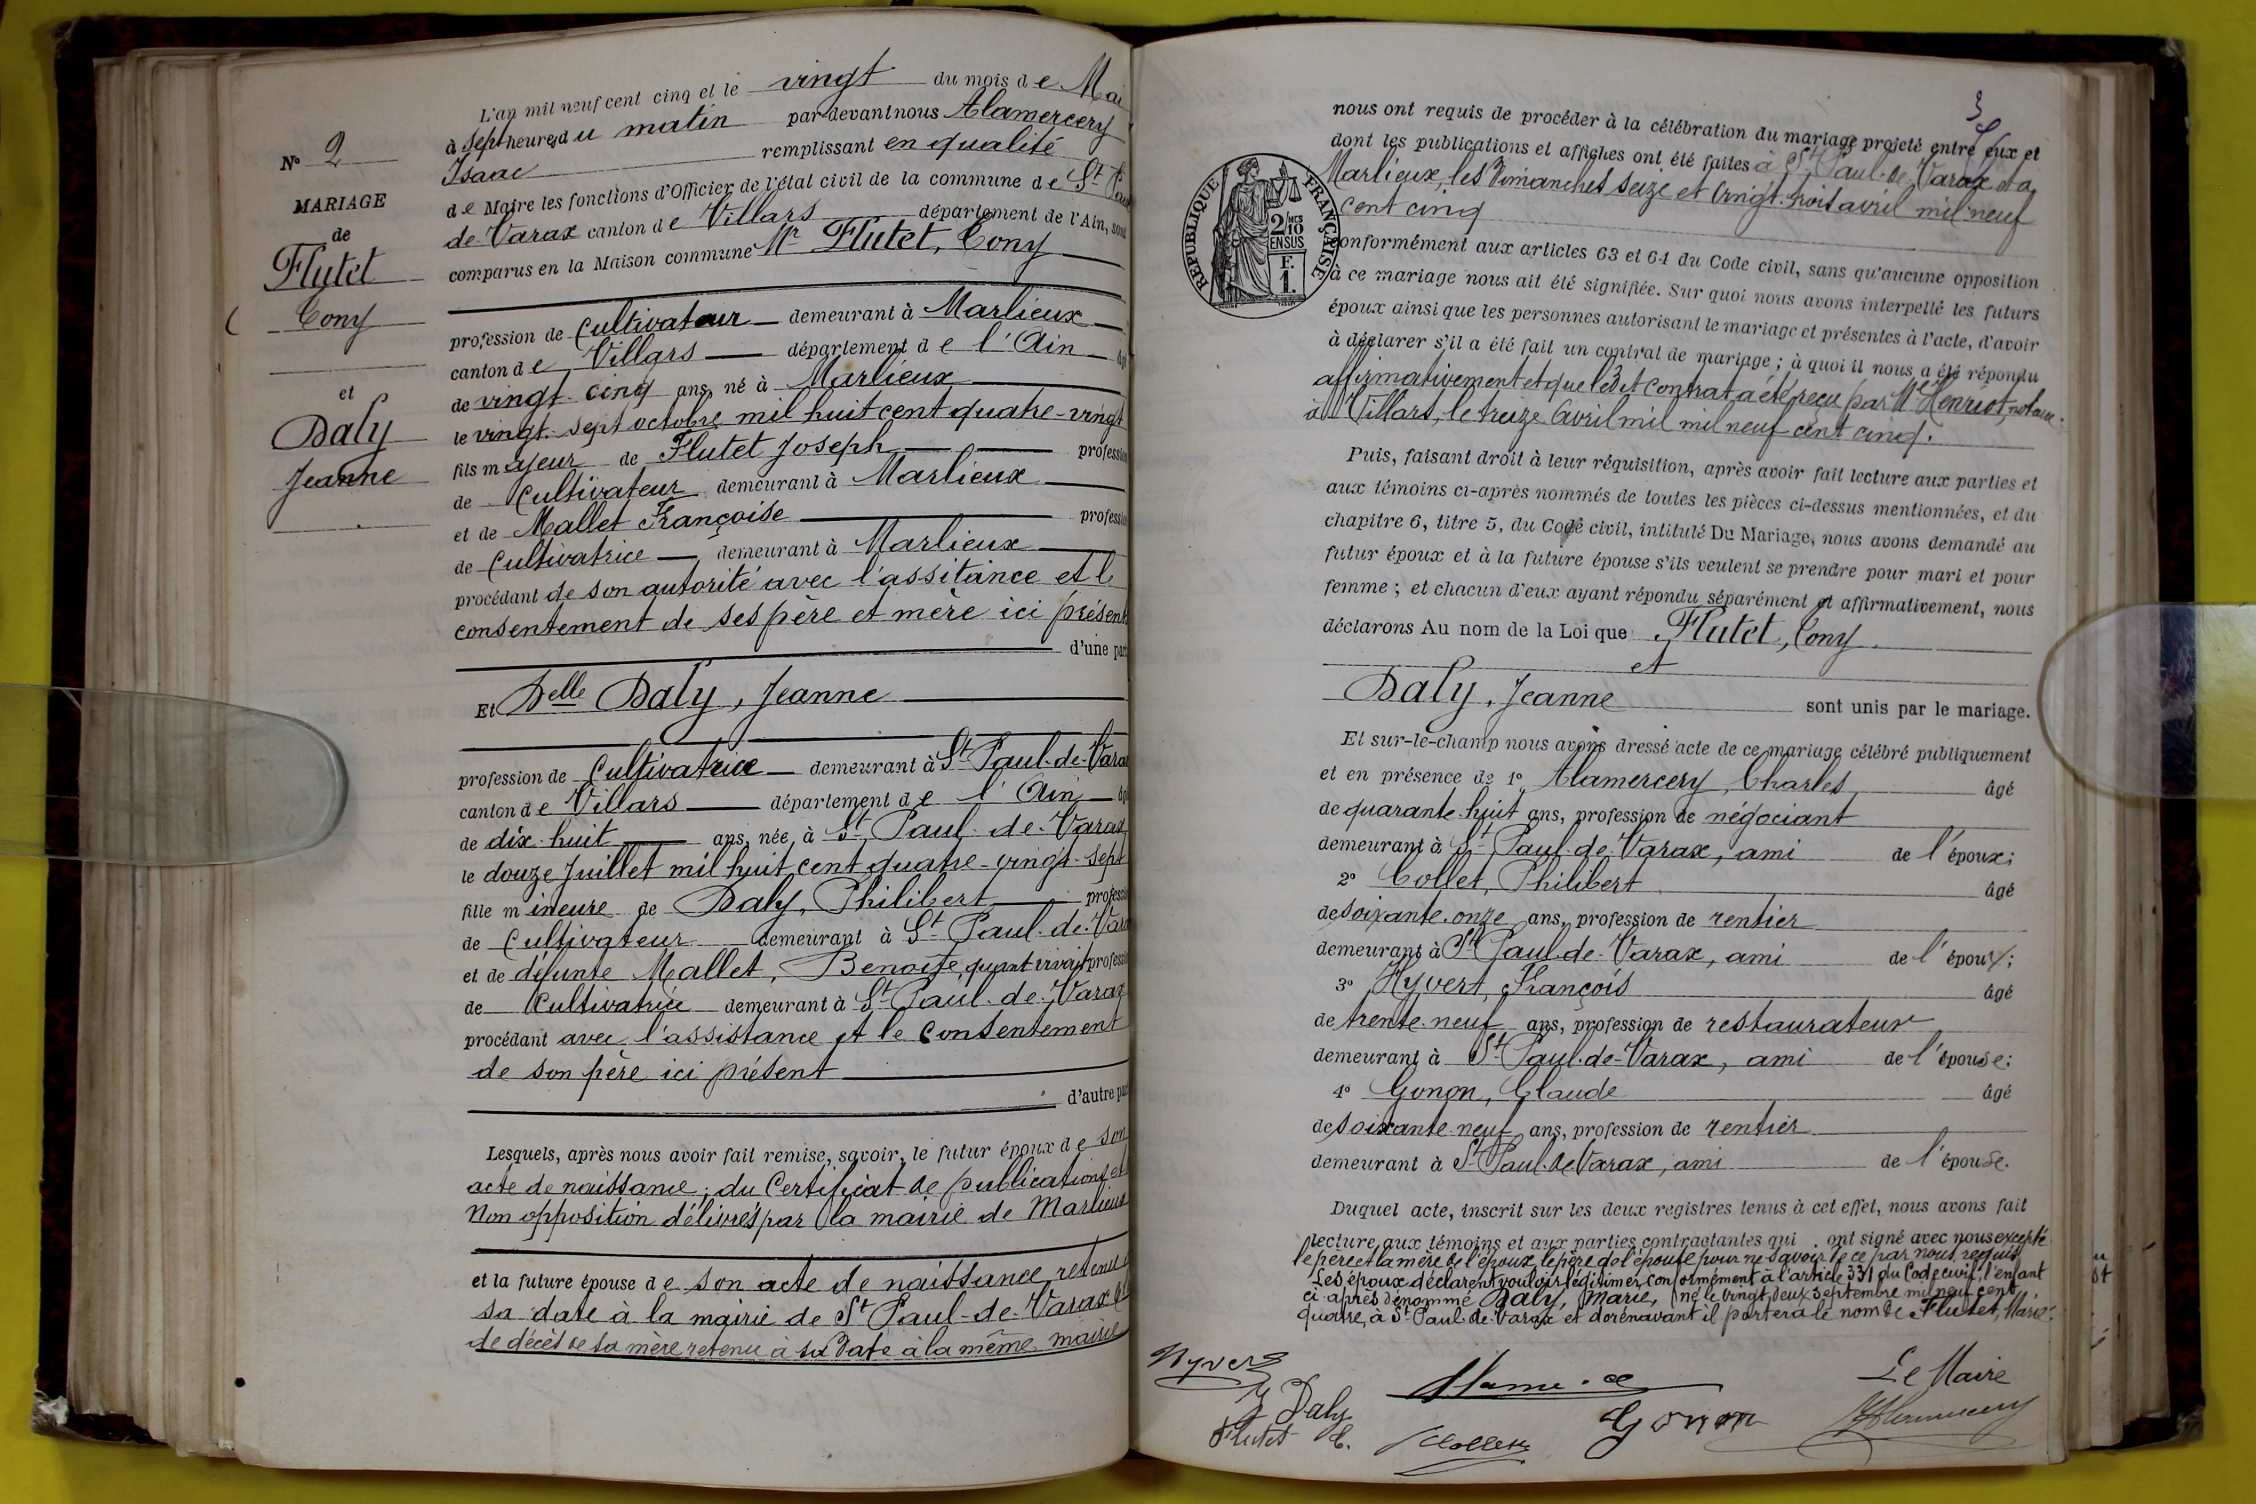 N° 2
MARIAGE
de
Flutet
Cony
et
Daly
Jeanne
L'an mil neuf cent cinq et le vingt du mois de Mai
à sept heures du matin par devant nous Alamercery
Isaac remplissant en qualité
de Maire les fonctions d'Officier de l'état civil de la commune de St Paul
de Varax canton de Villars département de l'Ain, sont
comparus en la Maison commune Mr Flutet, Cony
profession de Cultivateur demeurant à Marlieux
canton de Villars département de l'Ain
de vingt-cinq ans, né à Marlieux
le vingt-sept octobre mil huit cent quatre-vingt
fils majeur de Flutet Joseph profession
de Cultivateur demeurant à Marlieux
et de Mallet Françoise profession
de Cultivatrice demeurant à Marlieux
procédant de son autorité avec l'assitance et le
consentement de ses père et mère ici présents
d'une part
Et Delle Daly, Jeanne
profession de Cultivatrice demeurant à St Paul-de-Varax
canton de Villars département de l'Ain
de dix-huit ans, née à St Paul-de-Varax
le douze Juillet mil huit cent quatre-vingt-sept
fille mineure de Daly, Philibert profession
de Cultivateur demeurant à St Paul-de-Varax
et de défunte Mallet, Benoîte, quant vivait profession
de Cultivatrice demeurant à St Paul-de-Varax
procédant avec l'assistance et le consentement
de son père ici présent
d'autre part
Lesquels, après nous avoir fait remise, savoir, le futur époux de son
acte de naissance; du Certificat de publications et
Non opposition délivrés par la mairie de Marlieux
et la future épouse de son acte de naissance retenu à
sa date à la mairie de St Paul-de-Varax
de décès de sa mère retenu à sa date à la même mairie
3
RÉPUBLIQUE FRANÇAISE
2/10 EN SUS
F. 1.
nous ont requis de procéder à la célébration du mariage projeté entre eux et
dont les publications et affiches ont été faites à St Paul-de-Varax et à
Marlieux, les Dimanches seize et vingt-trois avril mil neuf
cent cinq
conformément aux articles 63 et 64 du Code civil, sans qu'aucune opposition
à ce mariage nous ait été signifiée. Sur quoi nous avons interpellé les futurs
époux ainsi que les personnes autorisant le mariage et présentes à l'acte, d'avoir
à déclarer s'il a été fait un contrat de mariage; à quoi il nous a été répondu
affirmativement et que ledit Contrat a été reçu par Me Henriot, notaire
à Villars, le treize Avril mil mil neuf cent cinq.
Puis, faisant droit à leur réquisition, après avoir fait lecture aux parties et
aux témoins ci-après nommés de toutes les pièces ci-dessus mentionnées, et du
chapitre 6, titre 5, du Code civil, intitulé Du Mariage, nous avons demandé au
futur époux et à la future épouse s'ils veulent se prendre pour mari et pour
femme; et chacun d'eux ayant répondu séparément et affirmativement, nous
déclarons Au nom de la Loi que Flutet, Cony
et
Daly, Jeanne sont unis par le mariage.
Et sur-le-champ nous avons dressé acte de ce mariage célébré publiquement
et en présence de 1° Alamercery, Charles âgé
de quarante-huit ans, profession de négociant
demeurant à St Paul-de-Varax, ami de l'époux;
2° Collet, Philibert âgé
de soixante-onze ans, profession de rentier
demeurant à St Paul-de-Varax, ami de l'époux;
3° Hyvert, François âgé
de trente-neuf ans, profession de restaurateur
demeurant à St Paul-de-Varax, ami de l'épouse;
4° Gonon, Claude âgé
de soixante-neuf ans, profession de rentier
demeurant à St Paul-de-Varax, ami de l'épouse.
Duquel acte, inscrit sur les deux registres tenus à cet effet, nous avons fait
lecture aux témoins et aux parties contractantes qui ont signé avec nous excepté
le père et la mère de l'époux, le père de l'épouse pour ne savoir de ce par nous requis
Les époux déclarent vouloir légitimer, conformément à l'article 331 du Code civil, l'enfant
ci-après dénommé Daly, Marie, né le vingt-deux septembre mil neuf cent
quatre, à St Paul-de-Varax et dorénavant il portera le nom de Flutet, Marie.
Hyvert
J Daly
Flutet C.
Collet
Gonon
Le Maire
Alamercery